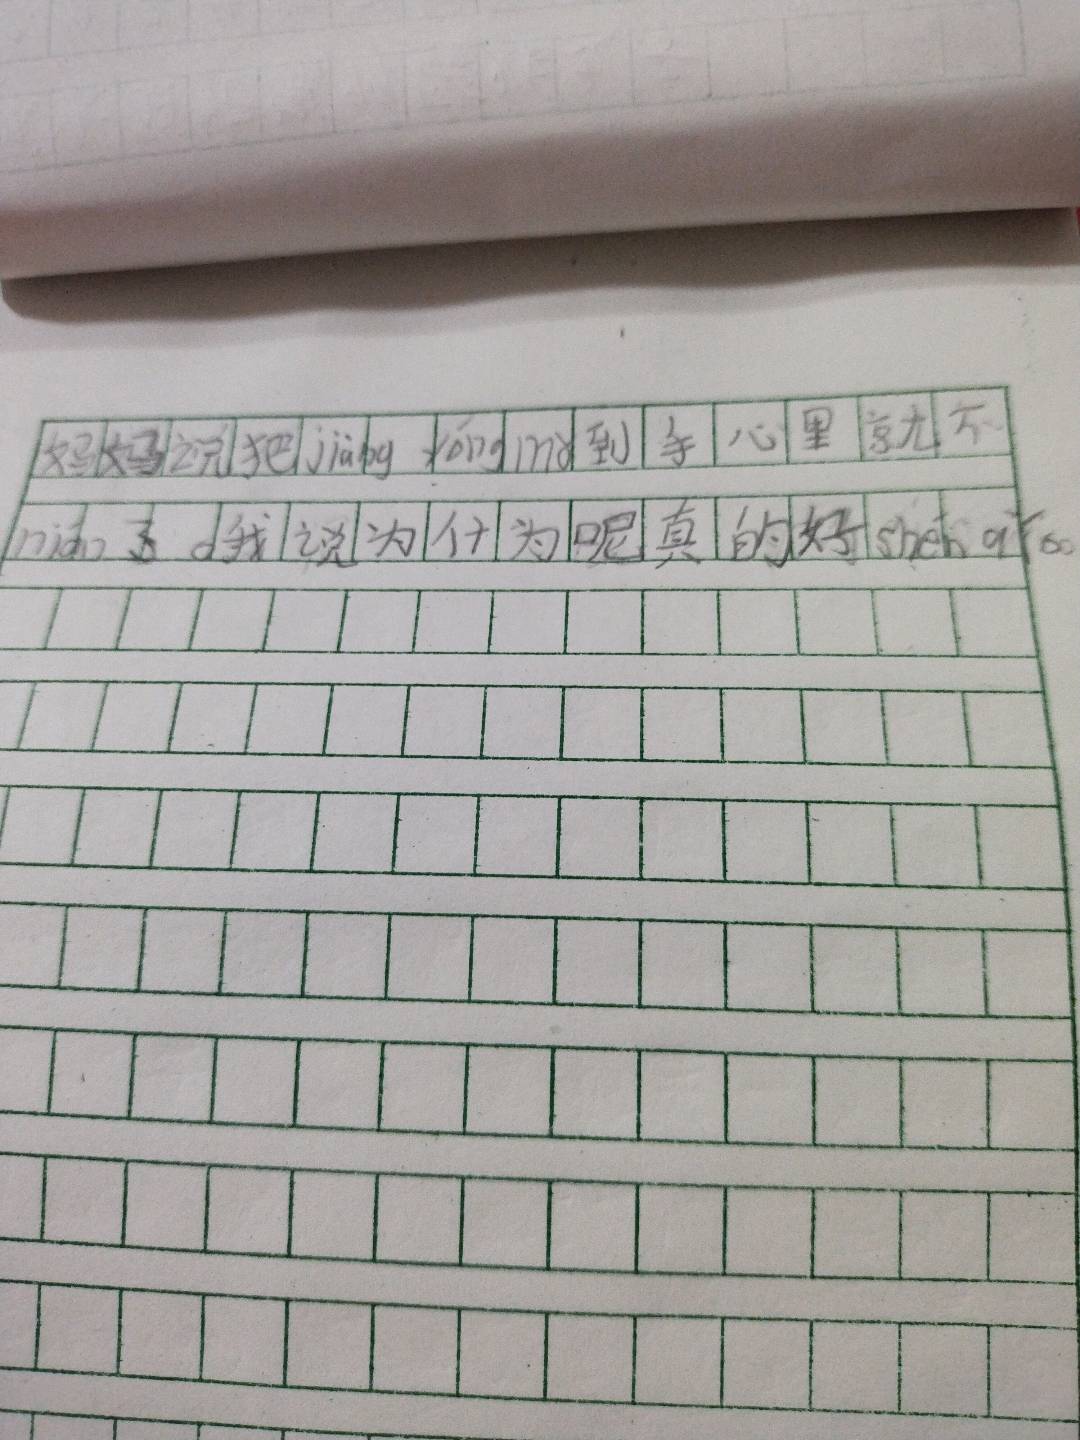 妈妈说把jiāng róng mǒ到手心里就不
nián了 我说为什为呢真的好shén qí